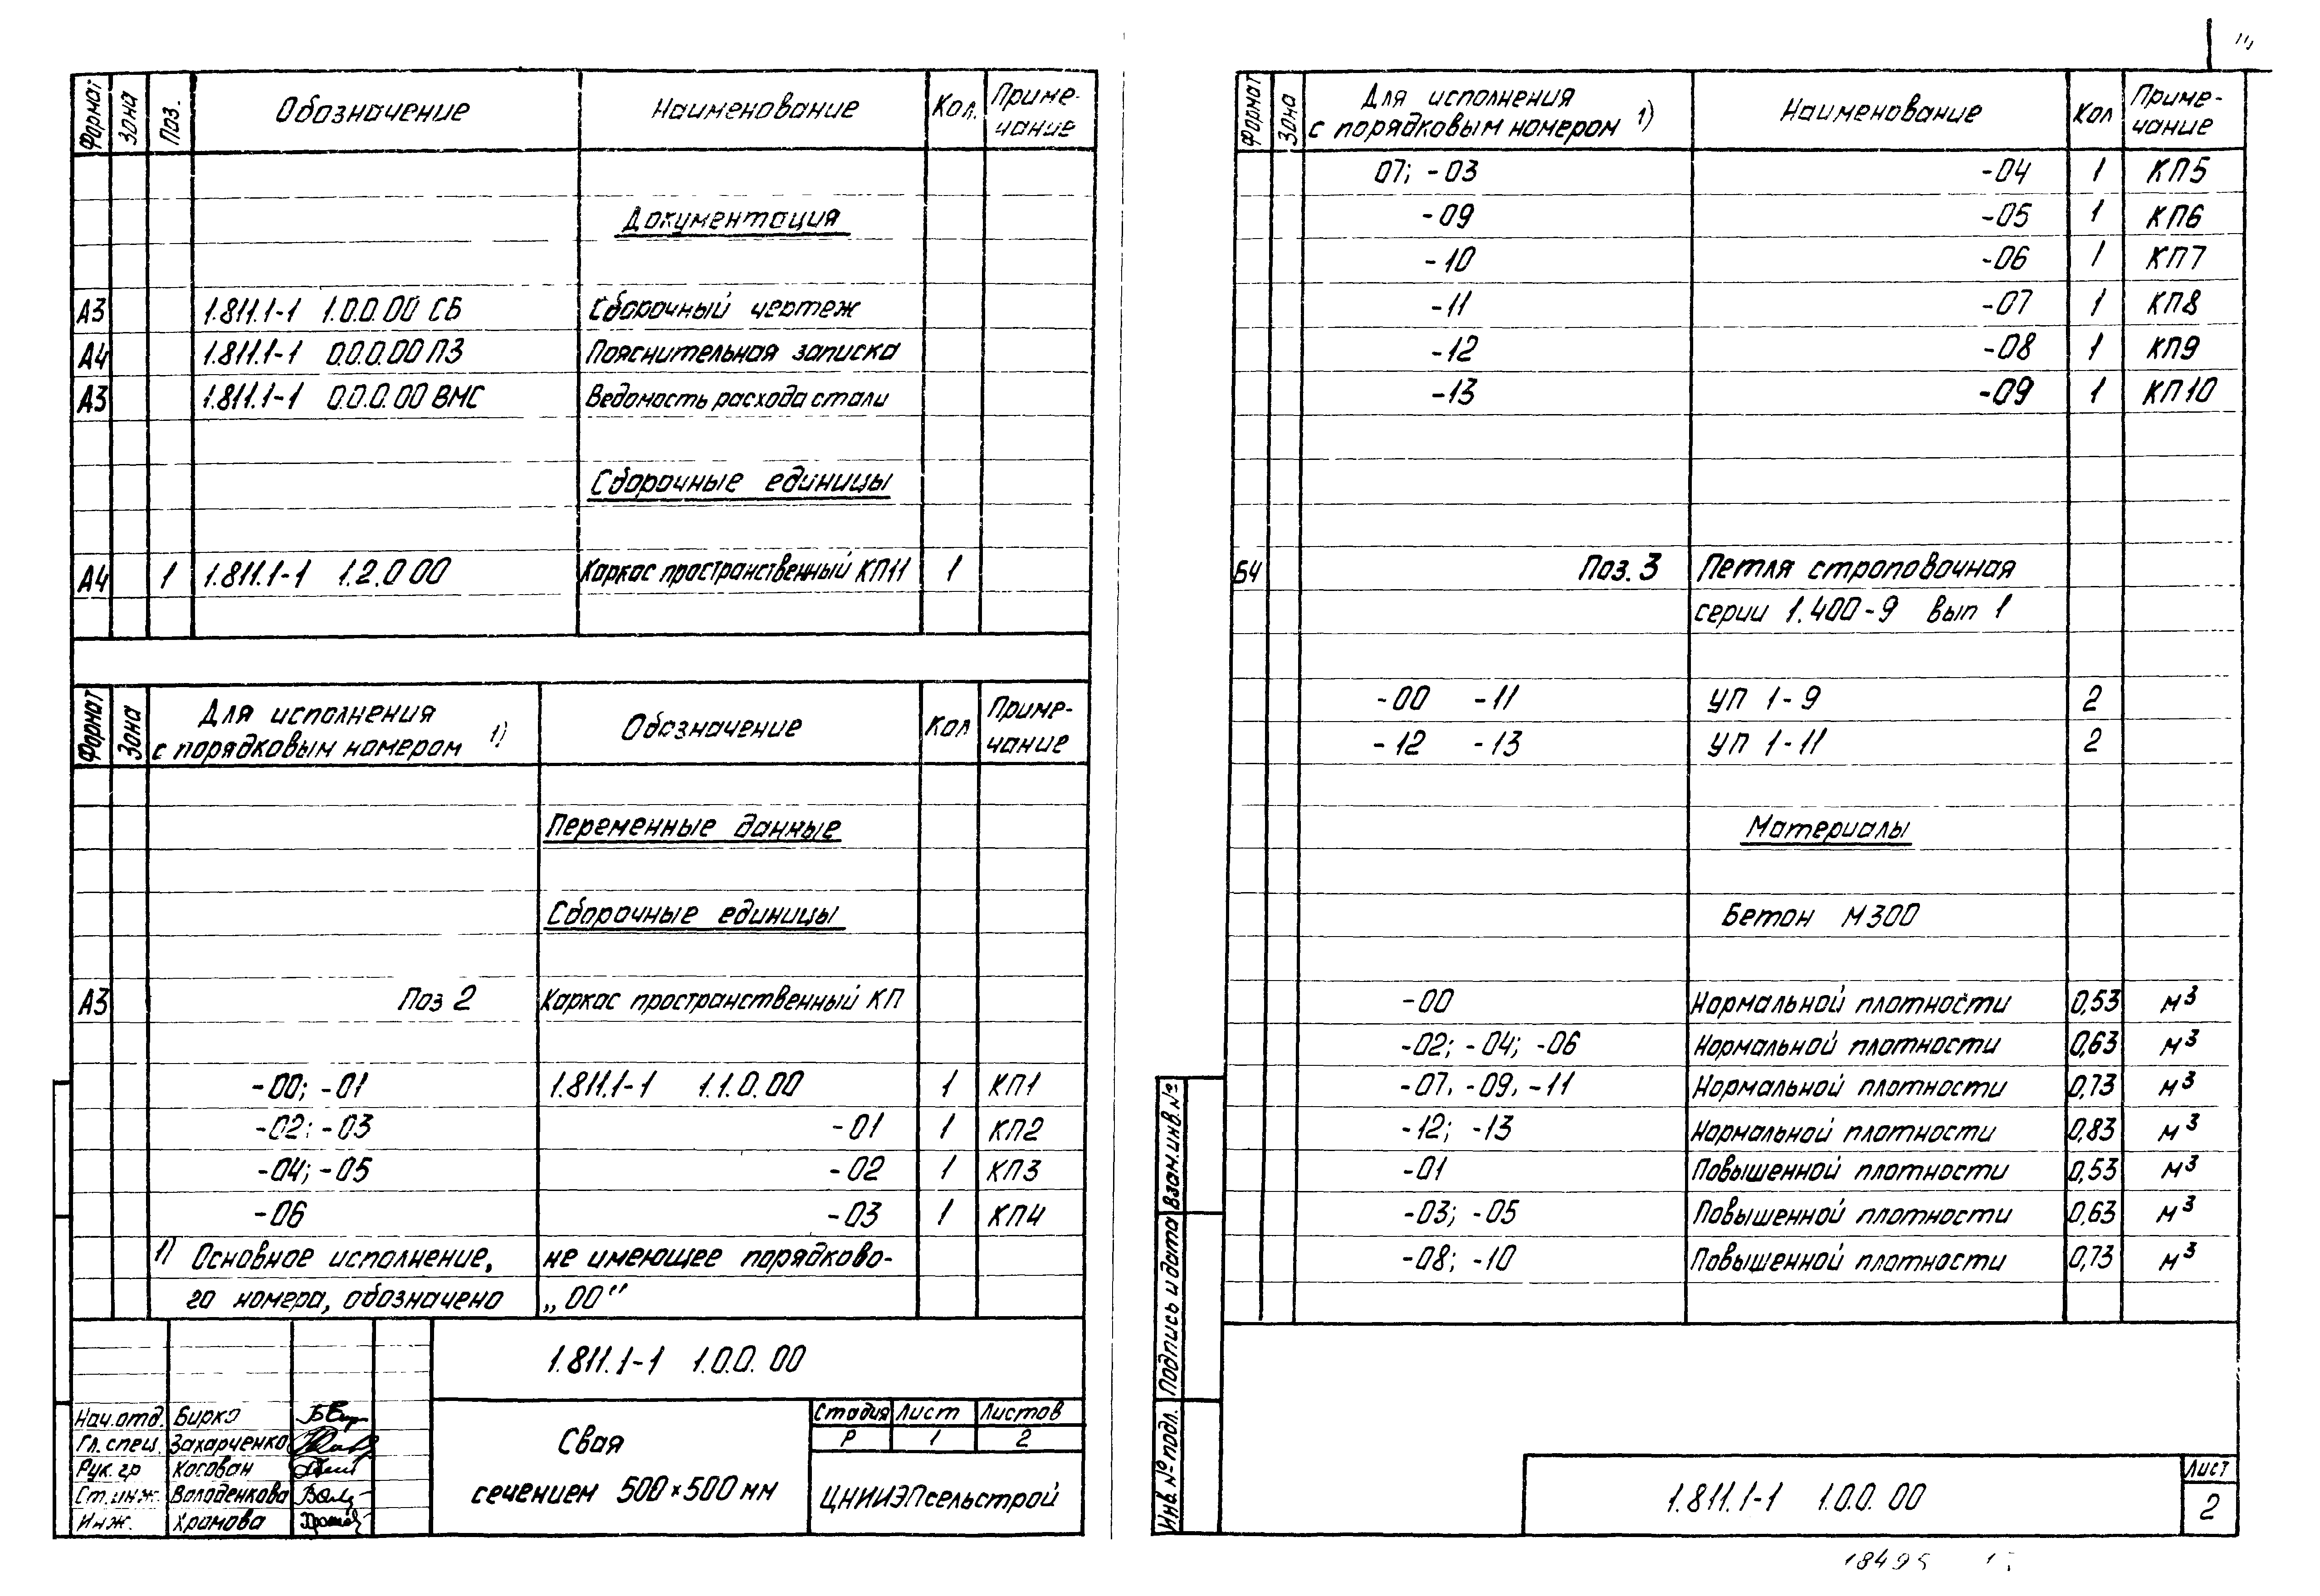 Формат Зона Поз. Обозначение Наименование Кол. Приме-чание
Документация
А3 1.811.1-1 1.0.0.00 СБ Сборочный чертеж
А4 1.811.1-1 0.0.0.00 ПЗ Пояснительная записка
А3 1.811.1-1 0.0.0.00 ВМС Ведомость расхода стали
Сборочные единицы
А4 1 1.811.1-1 1.2.0 00 Каркас пространственный КП11 1
Формат Зона Для исполнения с порядковым номером 1) Обозначение Кол Приме-чание
Переменные данные
Сборочные единицы
А3 Поз 2 Каркас пространственный КП
-00; -01 1.811.1-1 1.1.0.00 1 КП1
-02; -03 -01 1 КП2
-04; -05 -02 1 КП3
-06 -03 1 КП4
1) Основное исполнение, не имеющее порядково-
го номера, обозначено „00"
1.811.1-1 1.0.0.00
Нач.отд. Бирко
Гл. спец. Захарченко
Рук. гр Косован
Ст.инж. Володенкова
Инж. Храмова
Свая
сечением 500×500 мм
Стадия Лист Листов
Р 1 2
ЦНИИЭПсельстрой
Формат Зона Для исполнения с порядковым номером 1) Наименование Кол Приме-чание
07; -03 -04 1 КП5
-09 -05 1 КП6
-10 -06 1 КП7
-11 -07 1 КП8
-12 -08 1 КП9
-13 -09 1 КП10
Б4 Поз. 3 Петля строповочная
серии 1.400-9 вып 1
-00 -11 УП 1-9 2
-12 -13 УП 1-11 2
Материалы
Бетон М300
-00 Нормальной плотности 0,53 м³
-02; -04; -06 Нормальной плотности 0,63 м³
-07, -09, -11 Нормальной плотности 0,73 м³
-12; -13 Нормальной плотности 0,83 м³
-01 Повышенной плотности 0,53 м³
-03; -05 Повышенной плотности 0,63 м³
-08; -10 Повышенной плотности 0,73 м³
Взам.инв.№
Подпись и дата
Инв.№ подл.
1.811.1-1 1.0.0.00
Лист
2
18495